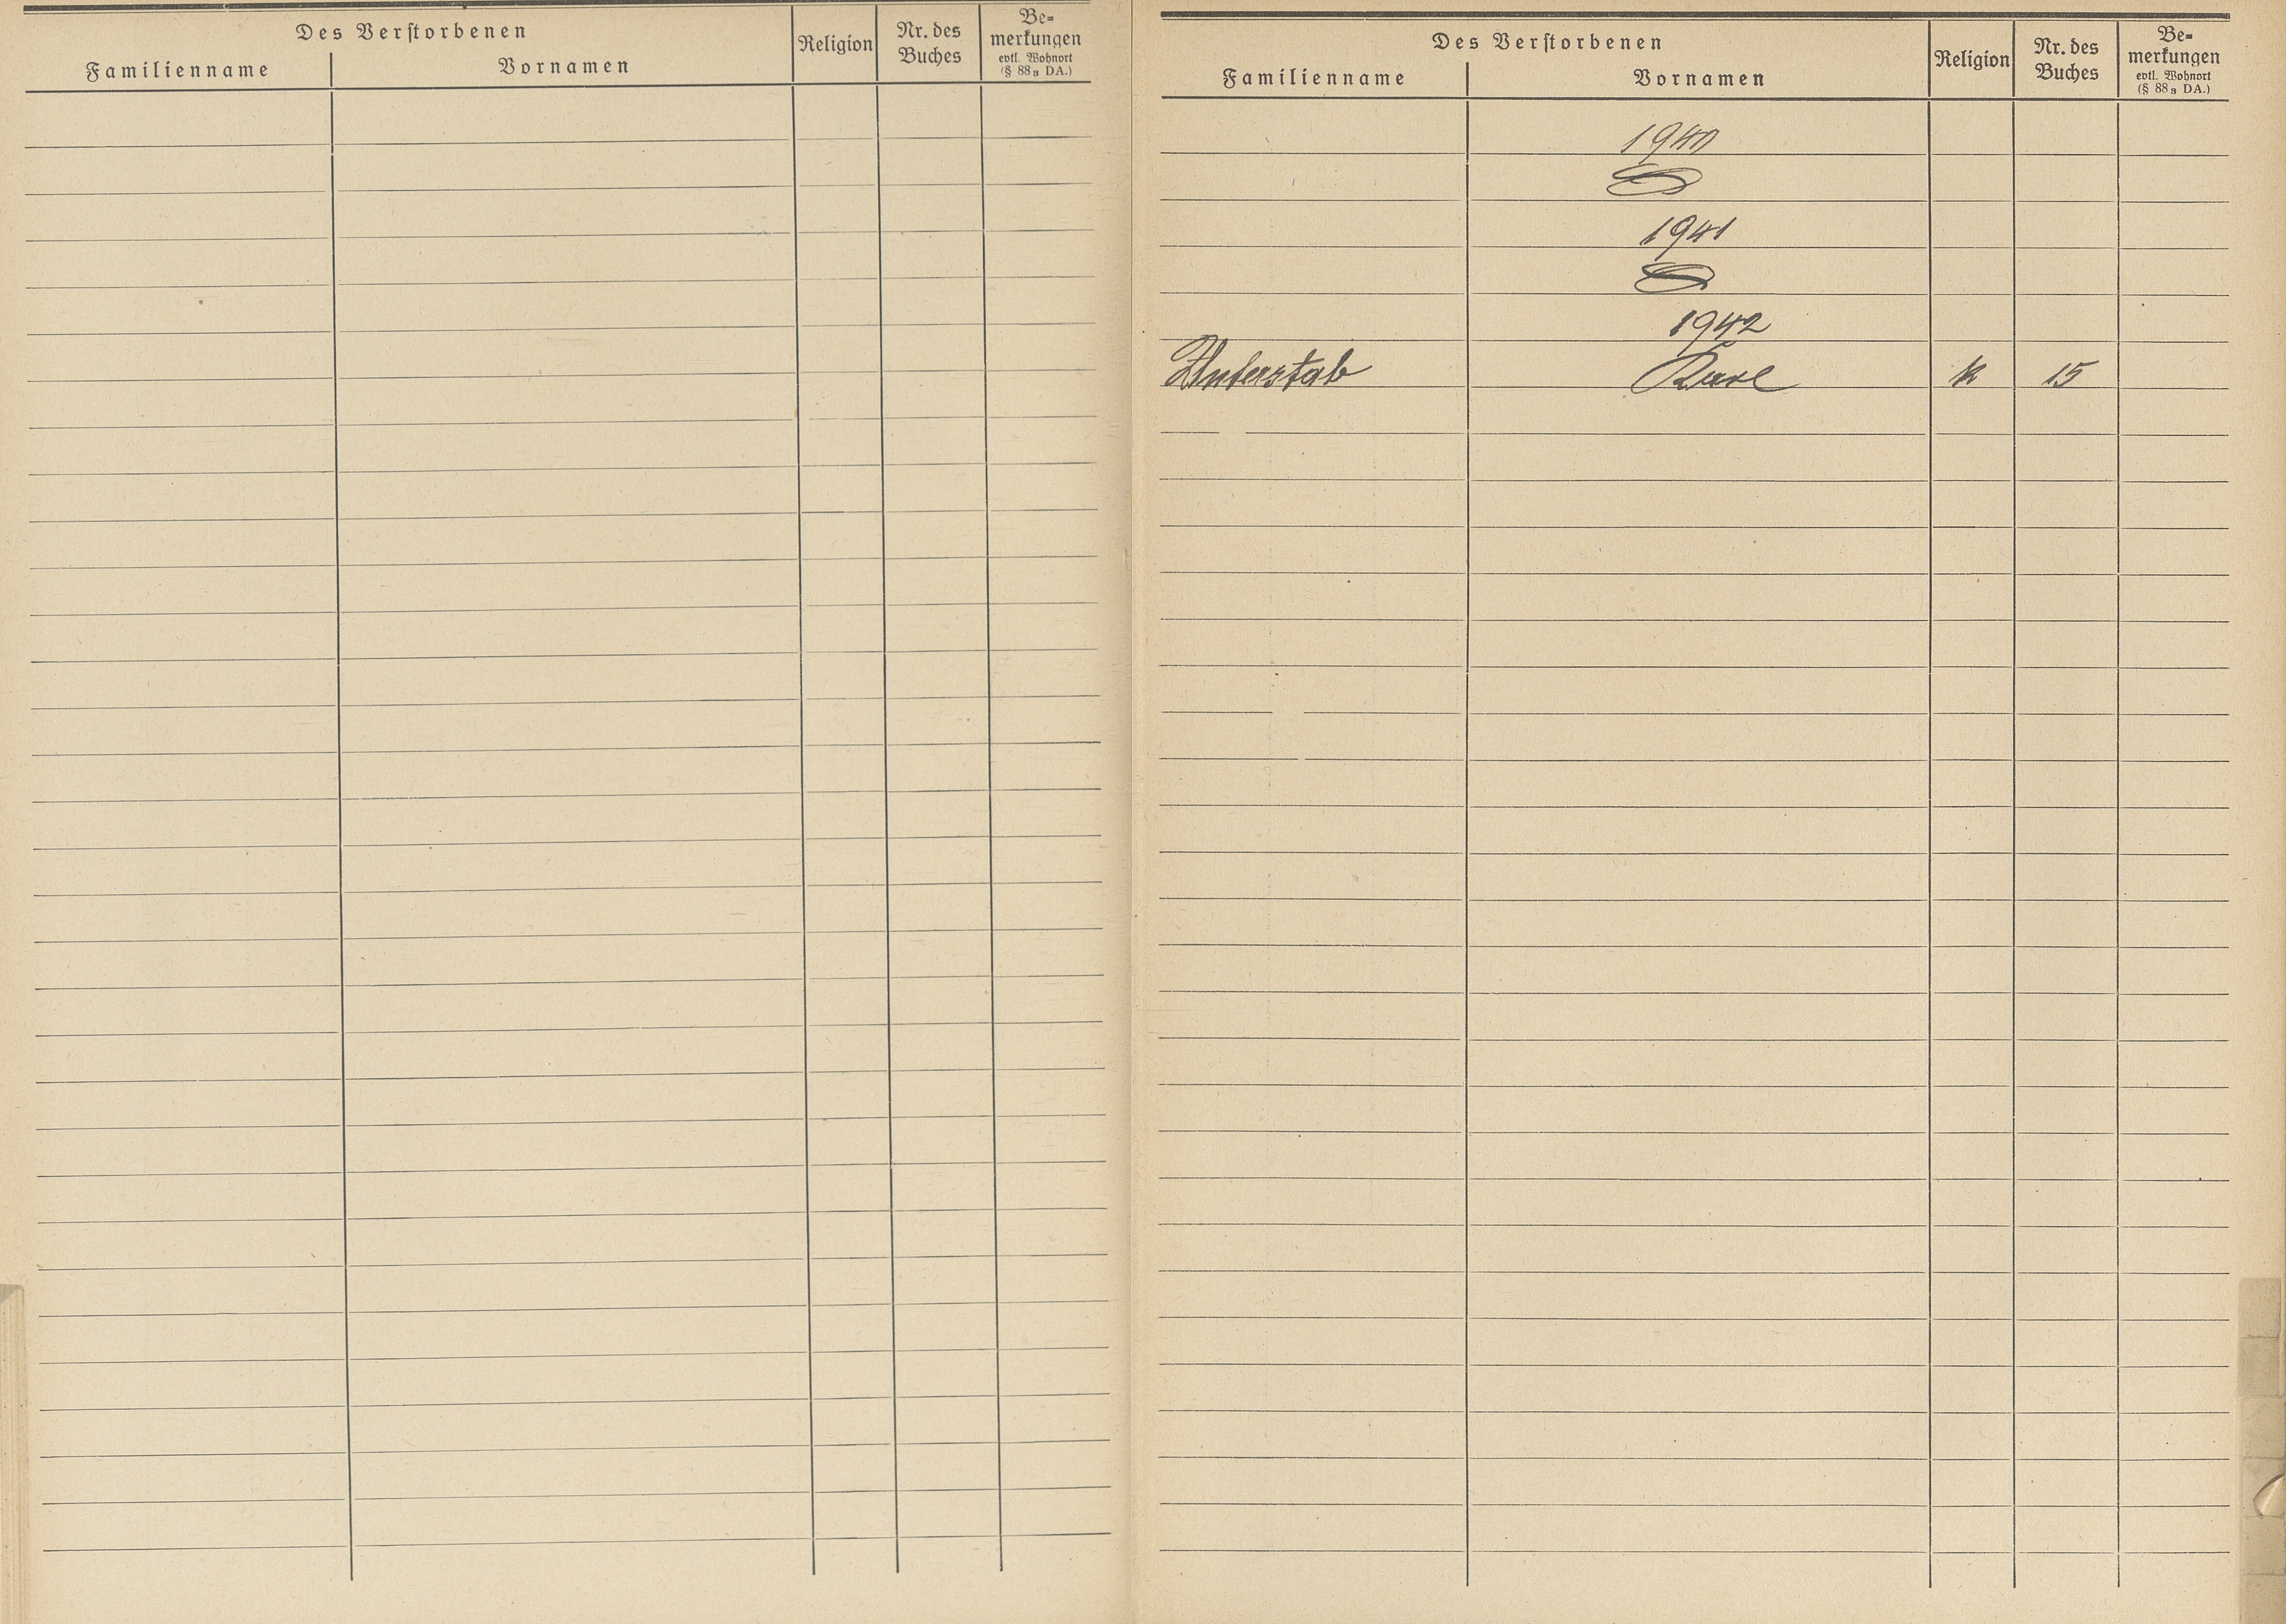 Des Verstorbenen
Familienname Vornamen Religion Nr. des Buches Be-
merkungen
evtl. Wohnort
(§ 88₃ DA.)
Des Verstorbenen
Familienname Vornamen Religion Nr. des Buches Be-
merkungen
evtl. Wohnort
(§ 88₃ DA.)
1940
1941
1942
Unterstab Karl k 15